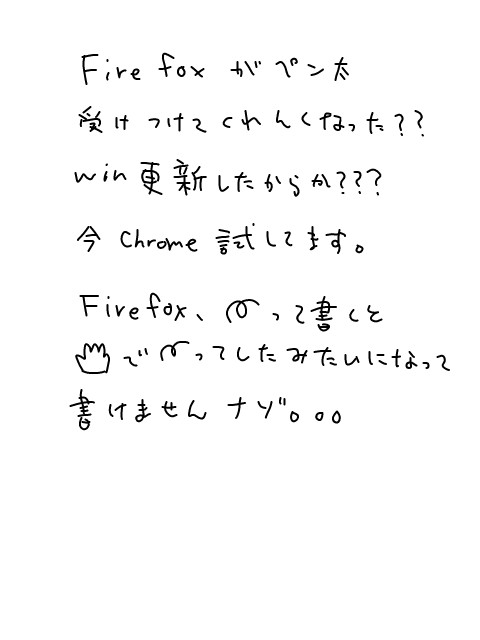 Firefox がペン太
受けつけてくれんくなった??
win更新したからか???
今 Chrome 試してます。
Firefox、って書くと
でってしたみたいになって
書けません ナゾ。。。